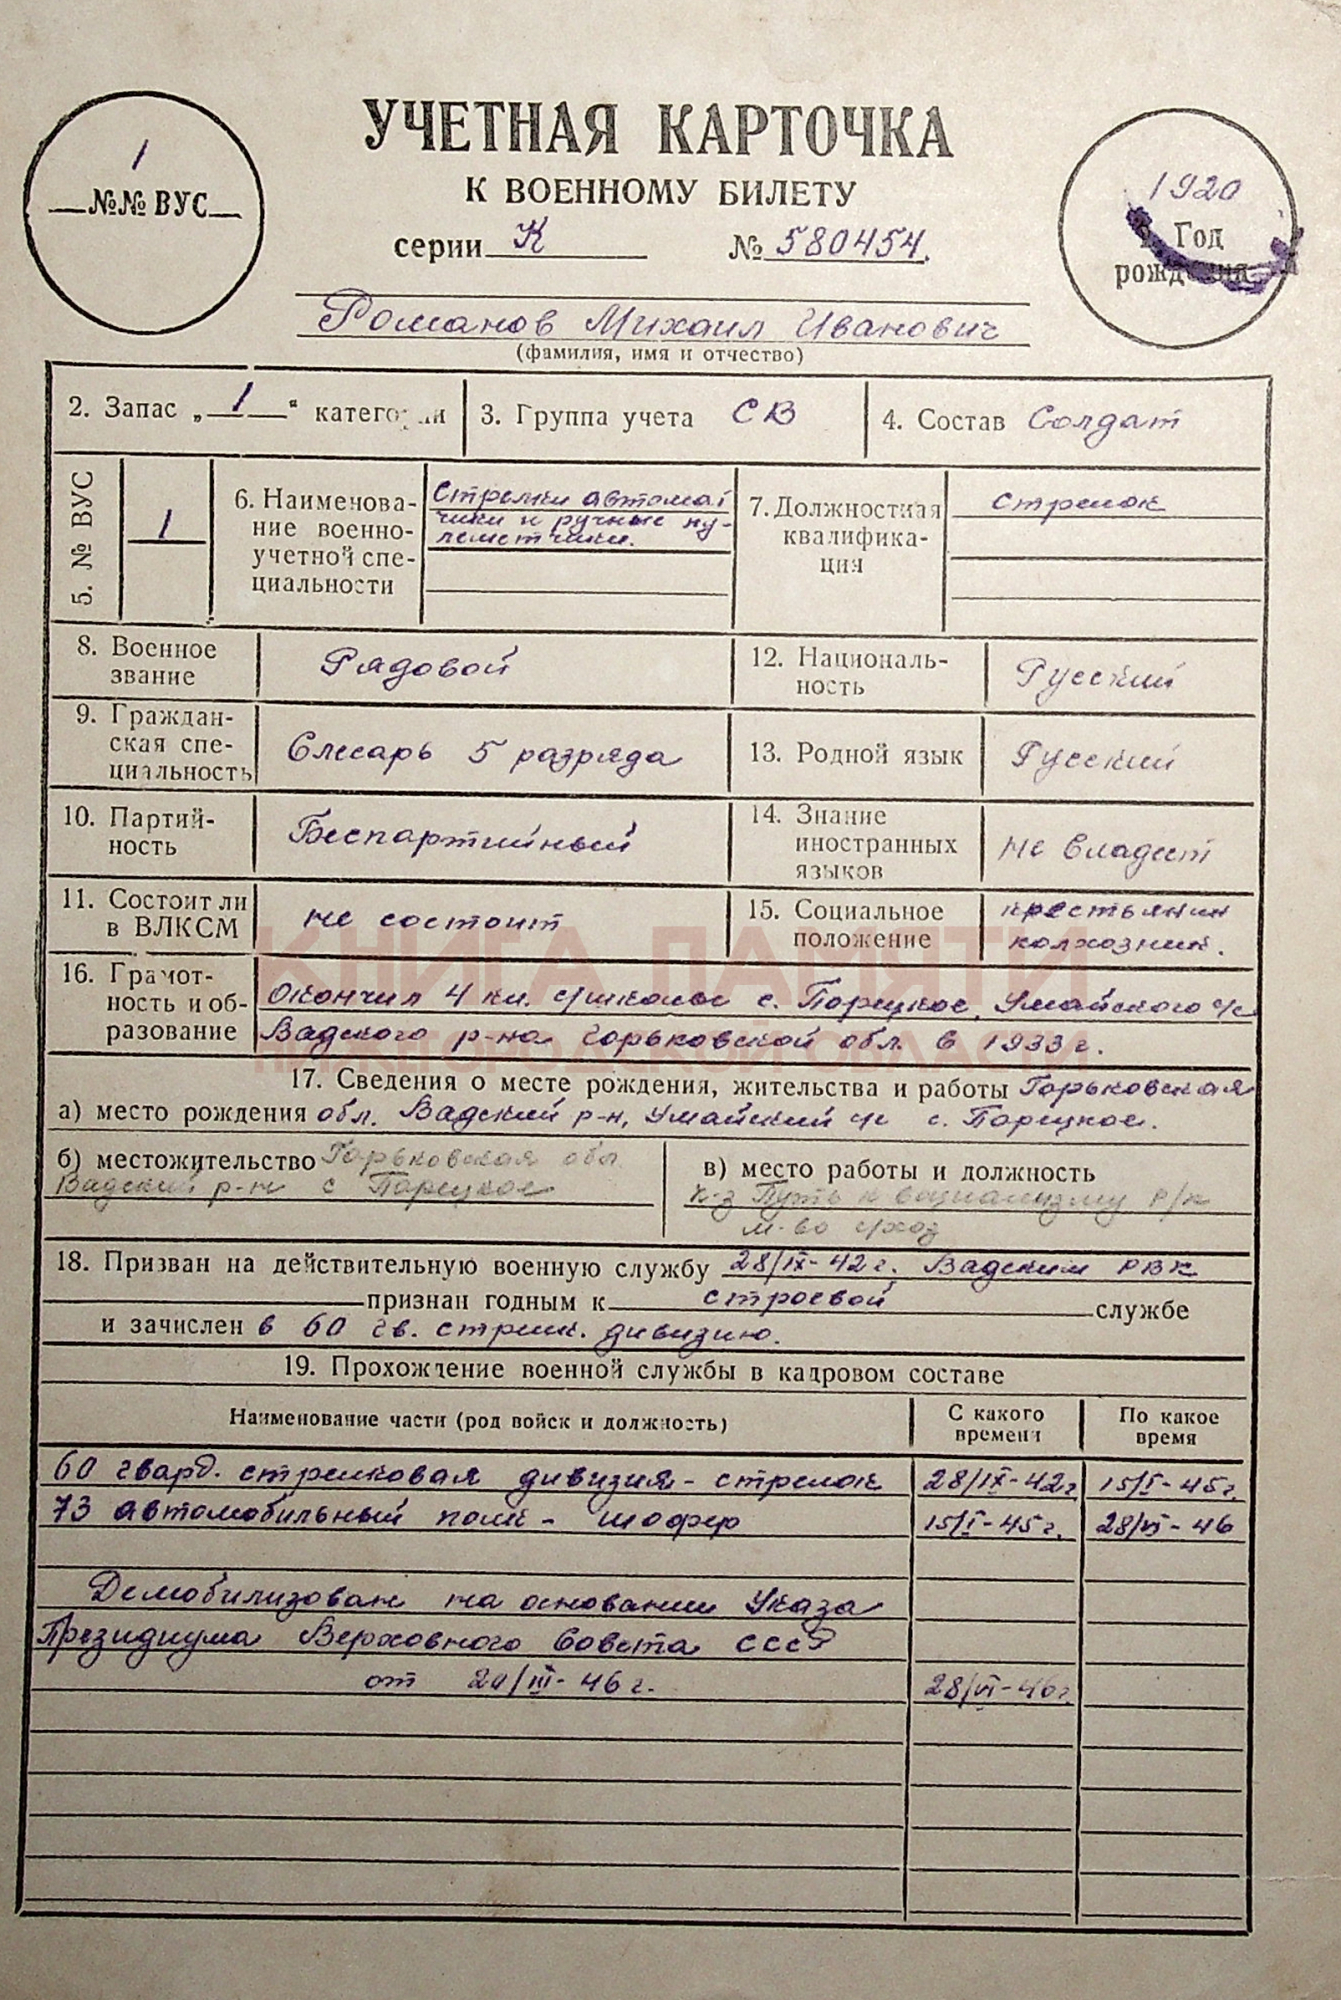 УЧЕТНАЯ КАРТОЧКА
К ВОЕННОМУ БИЛЕТУ
серии К № 580454.
1
№№ ВУС
1920
Год
рождения
Романов Михаил Иванович
(фамилия, имя и отчество)
2. Запас „ 1 “ категории
3. Группа учета СВ
4. Состав Солдат
5. № ВУС
1
6. Наименова-
ние военно-
учетной спе-
циальности
Стрелки автомат
чики и ручные пу-
леметчики.
7. Должностная
квалифика-
ция
стрелок
8. Военное
звание
Рядовой
12. Националь-
ность
Русский
9. Граждан-
ская спе-
циальность
Слесарь 5 разряда
13. Родной язык
Русский
10. Партий-
ность
Беспартийный
14. Знание
иностранных
языков
не владеет
11. Состоит ли
в ВЛКСМ
не состоит
15. Социальное
положение
крестьянин
колхозник.
16. Грамот-
ность и об-
разование
окончил 4 кл. с/школы с. Порецкое, Умайского с/с
Вадского р-на Горьковской обл. в 1933 г.
КНИГА ПАМЯТИ
НИЖЕГОРОДСКОЙ ОБЛАСТИ
17. Сведения о месте рождения, жительства и работы Горьковская
а) место рождения обл. Вадский р-н, Умайский с/с с. Порецкое.
б) местожительство Горьковская обл
Вадский р-н с Порецкое
в) место работы и должность
к-з Путь к социализму Р/к
м-во с/хоз
18. Призван на действительную военную службу 28/IX-42 г. Вадским РВК
признан годным к строевой службе
и зачислен в 60 гв. стрелк. дивизию.
19. Прохождение военной службы в кадровом составе
Наименование части (род войск и должность)
С какого
времени
По какое
время
60 гвард. стрелковая дивизия - стрелок 28/IX-42 г. 15/I-45 г.
73 автомобильный полк - шофер 15/I-45 г. 28/VI-46
Демобилизован на основании Указа
Президиума Верховного Совета СССР
от 20/III-46 г. 28/VI-46 г.